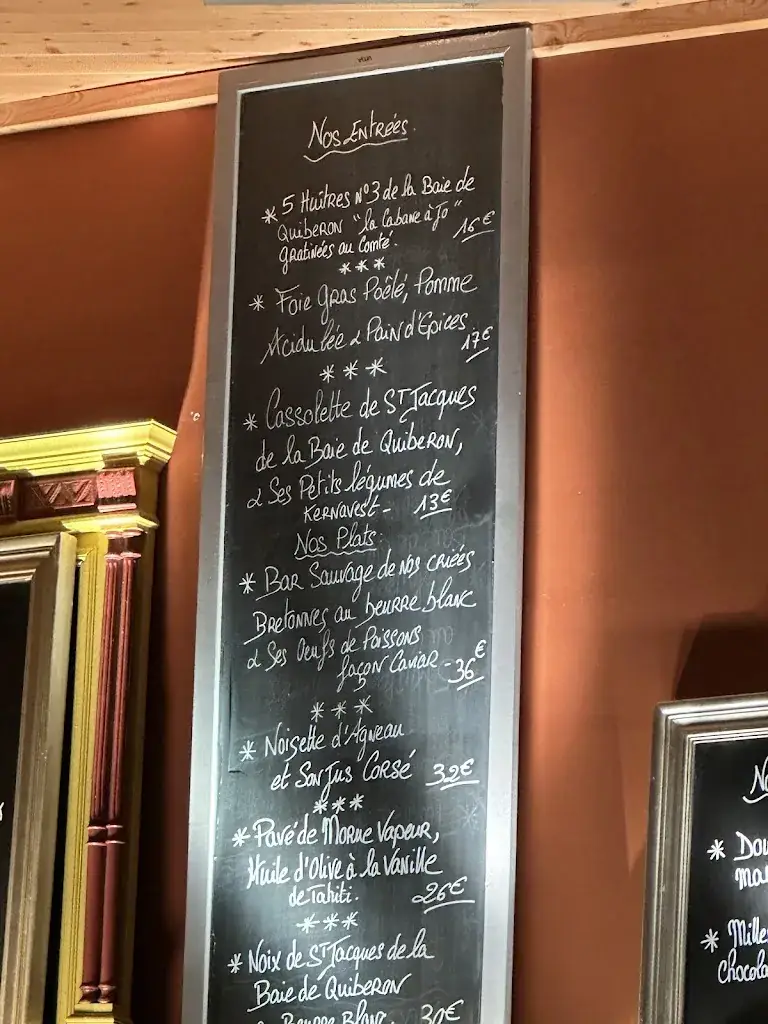 Nos Entrées.
* 5 Huîtres N°3 de la Baie de
Quiberon "la Cabane à Jo"
gratinées au Comté. 16€
***
* Foie Gras Poêlé, Pomme
Acidulée & Pain d'Epices 17€
***
* Cassolette de ST Jacques
de la Baie de Quiberon,
& Ses Petits légumes de
Kernavest - 13€
Nos Plats.
* Bar Sauvage de nos criées
Bretonnes au beurre blanc
& Ses Oeufs de Poissons
façon Caviar - 36€
***
* Noisette d'Agneau
et Son Jus Corsé 32€
***
* Pavé de Morue Vapeur,
Huile d'Olive à la Vanille
de Tahiti. 26€
***
* Noix de ST Jacques de la
Baie de Quiberon
Beurre Blanc. 30€
* Dou
* Mille
Chocola